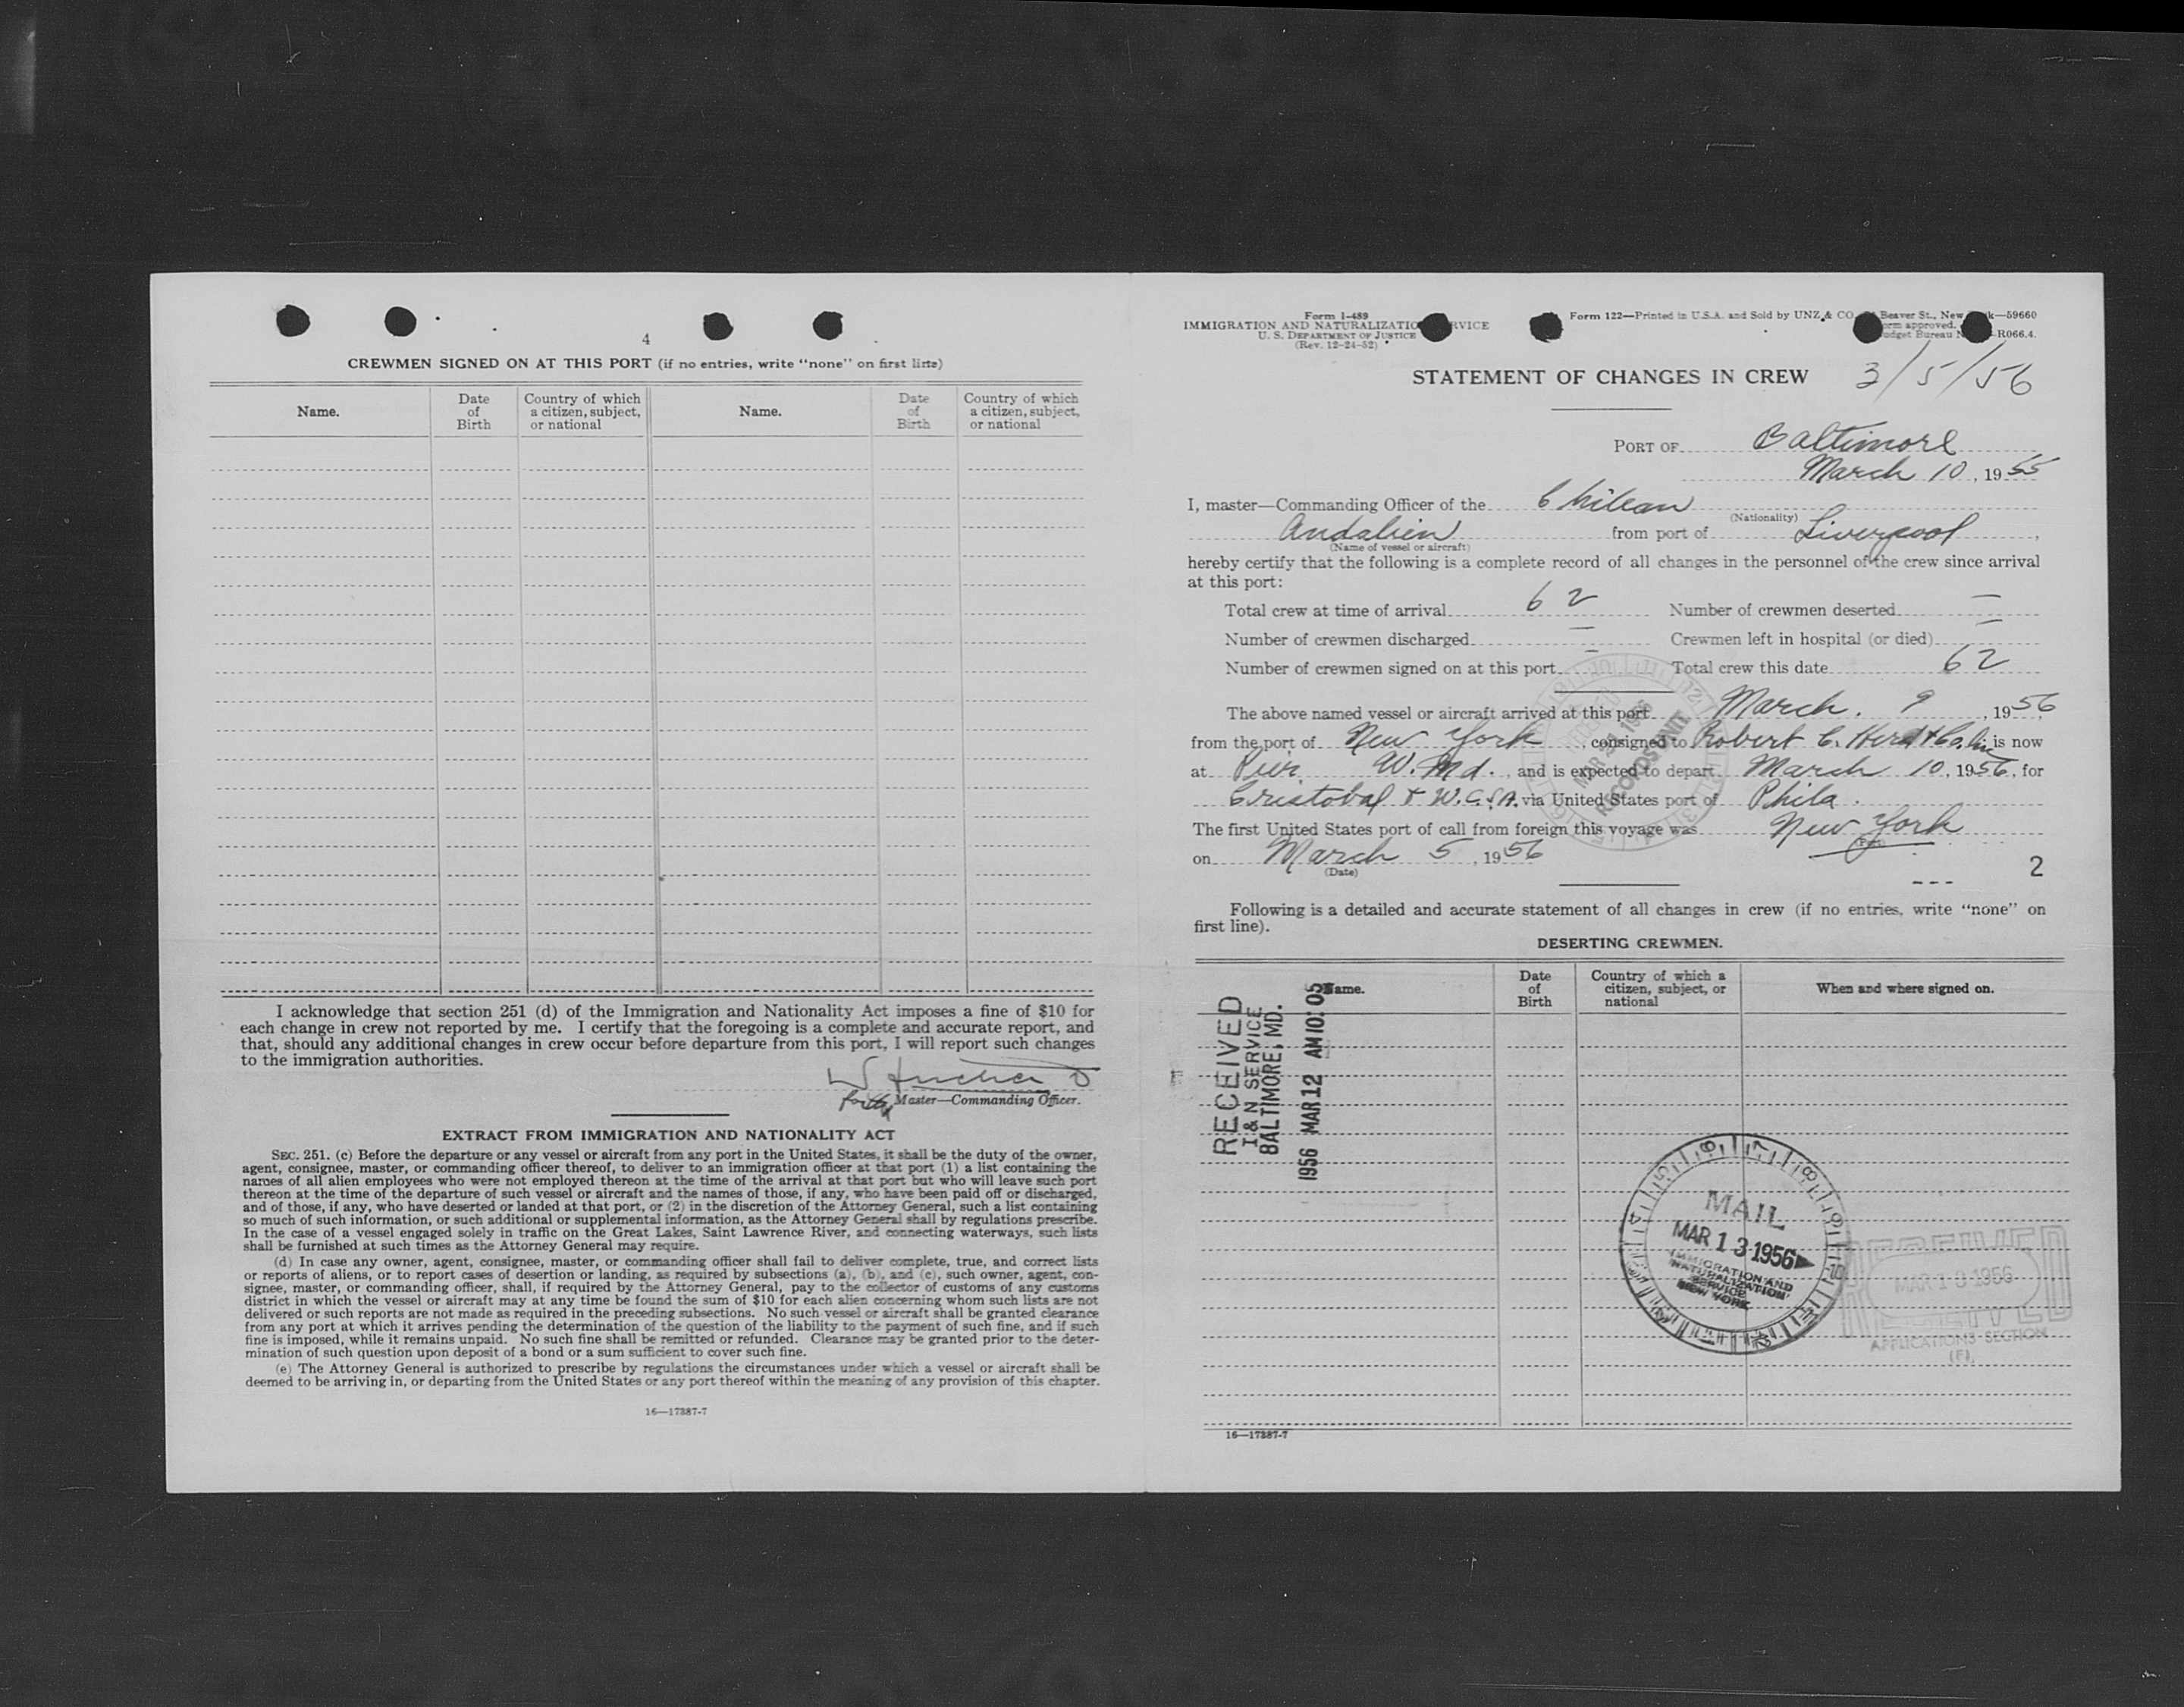 4
CREWMEN SIGNED ON AT THIS PORT (if no entries, write "none" on first line)
Name. Date of Birth Country of which a citizen, subject, or national Name. Date of Birth Country of which a citizen, subject, or national
I acknowledge that section 251 (d) of the Immigration and Nationality Act imposes a fine of $10 for
each change in crew not reported by me. I certify that the foregoing is a complete and accurate report, and
that, should any additional changes in crew occur before departure from this port, I will report such changes
to the immigration authorities.
Master—Commanding Officer.
EXTRACT FROM IMMIGRATION AND NATIONALITY ACT
SEC. 251. (c) Before the departure or any vessel or aircraft from any port in the United States, it shall be the duty of the owner,
agent, consignee, master, or commanding officer thereof, to deliver to an immigration officer at that port (1) a list containing the
names of all alien employees who were not employed thereon at the time of the arrival at that port but who will leave such port
thereon at the time of the departure of such vessel or aircraft and the names of those, if any, who have been paid off or discharged,
and of those, if any, who have deserted or landed at that port, or (2) in the discretion of the Attorney General, such a list containing
so much of such information, or such additional or supplemental information, as the Attorney General shall by regulations prescribe.
In the case of a vessel engaged solely in traffic on the Great Lakes, Saint Lawrence River, and connecting waterways, such lists
shall be furnished at such times as the Attorney General may require.
(d) In case any owner, agent, consignee, master, or commanding officer shall fail to deliver complete, true, and correct lists
or reports of aliens, or to report cases of desertion or landing, as required by subsections (a), (b), and (c), such owner, agent, con-
signee, master, or commanding officer, shall, if required by the Attorney General, pay to the collector of customs of any customs
district in which the vessel or aircraft may at any time be found the sum of $10 for each alien concerning whom such lists are not
delivered or such reports are not made as required in the preceding subsections. No such vessel or aircraft shall be granted clearance
from any port at which it arrives pending the determination of the question of the liability to the payment of such fine, and if such
fine is imposed, while it remains unpaid. No such fine shall be remitted or refunded. Clearance may be granted prior to the deter-
mination of such question upon deposit of a bond or a sum sufficient to cover such fine.
(e) The Attorney General is authorized to prescribe by regulations the circumstances under which a vessel or aircraft shall be
deemed to be arriving in, or departing from the United States or any port thereof within the meaning of any provision of this chapter.
16—17387-7
Form I-489
IMMIGRATION AND NATURALIZATIO RVICE
U. S. DEPARTMENT OF JUSTICE
(Rev. 12-24-52)
Form 122—Printed in U.S.A. and Sold by UNZ & CO. Beaver St., New k—59660
orm approved.
udget Bureau N -R066.4.
STATEMENT OF CHANGES IN CREW 3/5/56
PORT OF Baltimore
March 10, 1955
I, master—Commanding Officer of the Chilean
(Nationality)
Andalien from port of Liverpool,
(Name of vessel or aircraft)
hereby certify that the following is a complete record of all changes in the personnel of the crew since arrival
at this port:
Total crew at time of arrival 62 Number of crewmen deserted —
Number of crewmen discharged — Crewmen left in hospital (or died) —
Number of crewmen signed on at this port - Total crew this date 62
The above named vessel or aircraft arrived at this port March. 9, 1956
from the port of New York, consigned to Robert C. Herd & Co. Inc is now
at Pier W. Md., and is expected to depart March 10, 1956, for
Cristobal & W.C.S.A. via United States port of Phila.
The first United States port of call from foreign this voyage was New York
(Port)
on March 5, 1956
(Date)
2
Following is a detailed and accurate statement of all changes in crew (if no entries, write "none" on
first line).
DESERTING CREWMEN.
Name. Date of Birth Country of which a citizen, subject, or national When and where signed on.
RECEIVED
I & N SERVICE
BALTIMORE, MD.
1956 MAR 12 AM 10:05
MAR 1956
RECORDS UNIT
MAIL
MAR 13 1956
IMMIGRATION AND
NATURALIZATION
SERVICE
NEW YORK
RECEIVED
MAR 1 3 1956
APPLICATIONS SECTION
(F)
16—17387-7